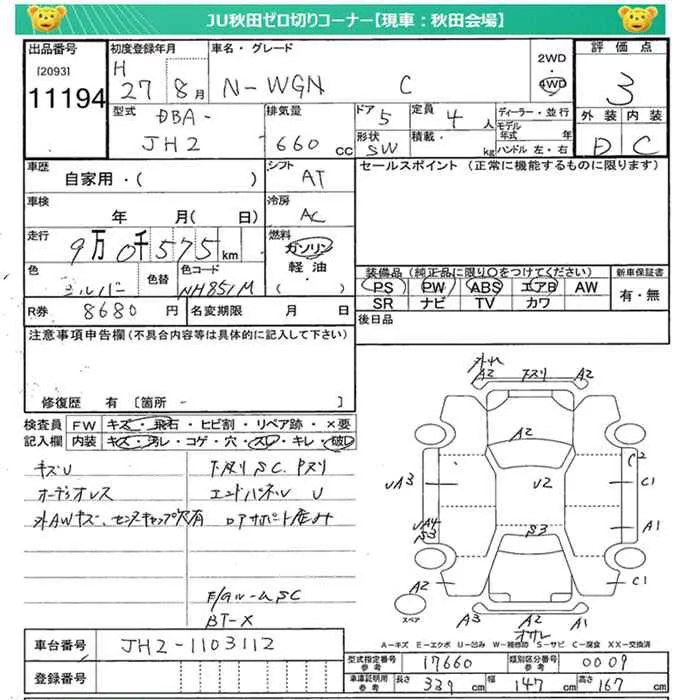 JU秋田ゼロ切りコーナー【現車：秋田会場】
出品番号
[2093]
11194
初度登録年月
H 27年 8月
車名・グレード
N-WGN C
2WD
4WD
評価点
3
外装 内装
D C
型式
DBA-
JH2
排気量
660 cc
ドア 5
定員 4人
形状 SW
積載 kg
ディーラー・並行
モデル年式 年
ハンドル 左・右
車歴
自家用・( )
シフト
AT
セールスポイント (正常に機能するものに限ります)
車検
年 月( 日)
冷房
AC
走行
9万0千575km
燃料
ガソリン
軽油
色
シルバー
色替
色コード
NH851M
装備品 (純正品に限り○をつけてください)
PS PW ABS エアB AW
SR ナビ TV カワ
新車保証書
有・無
R券 8680円
名変期限 月 日
後日品
注意事項申告欄(不具合内容等は具体的に記入して下さい)
修復歴 有 [箇所 - ]
検査員記入欄
FW キズ・飛石・ヒビ割・リペア跡・×要
内装 キズ・汚レ・コゲ・穴・スレ・キレ・破レ
キズU
オーディオレス
外AWキズ、センターキャップ欠有
下廻りSC. 下スリ
エンドパネルU
ロアサポート
F/GルームSC
BT-X
外れ
A2 下スリ A2
A2
C2
UA3
U2
C1
UA4
S3
S3
A1
A2
C1
スペア
A3 A2 A1
オサレ
A-キズ E-エクボ U-凹み W-補修跡 S-サビ C-腐食 XX-交換済
車台番号 JH2-1103112
登録番号
型式指定番号 参考 17660
類別区分番号 参考 0009
車庫証明用 参考 長さ 339cm 幅 147cm 高さ 167cm